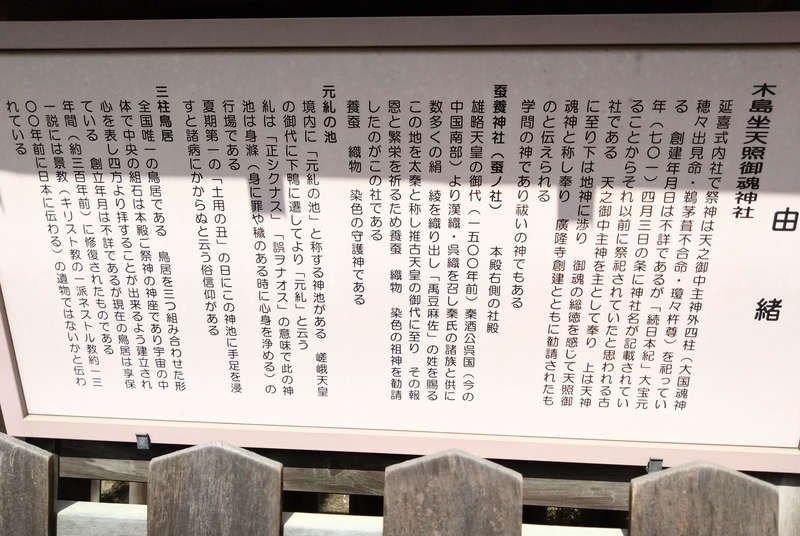 由緒
木島坐天照御魂神社
延喜式内社で祭神は天之御中主神外四柱（大国魂神
穂々出見命・鵜茅葺不合命・瓊々杵尊）を祀ってい
る　創建年月日は不詳であるが「続日本紀」大宝元
年（七〇一）四月三日の条に神社名が記載されてい
ることからそれ以前に祭祀されていたと思われる古
社である　天之御中主神を主として奉り　上は天神
に至り下は地神に渉り　御魂の総徳を感じて天照御
魂神と称し奉り　廣隆寺創建とともに勧請されたも
のと伝えられる
学問の神であり祓いの神でもある
蚕養神社（蚕ノ社）　本殿右側の社殿
雄略天皇の御代（一五〇〇年前）秦酒公呉国（今の
中国南部）より漢織・呉織を召し秦氏の諸族と供に
数多くの絹　綾を織り出し「禹豆麻佐」の姓を賜る
この地を太秦と称し推古天皇の御代に至り　その報
恩と繁栄を祈るため養蚕　織物　染色の祖神を勧請
したのがこの社である
養蚕　織物　染色の守護神である
元糺の池
境内に「元糺の池」と称する神池がある　嵯峨天皇
の御代に下鴨に遷してより「元糺」と云う
糺は「正シクナス」「誤ヲナオス」の意味で此の神
池は身滌（身に罪や穢のある時に心身を浄める）の
行場である
夏期第一の「土用の丑」の日にこの神池に手足を浸
すと諸病にかからぬと云う俗信仰がある
三柱鳥居
全国唯一の鳥居である　鳥居を三つ組み合わせた形
体で中央の組石は本殿ご祭神の神座であり宇宙の中
心を表し四方より拝することが出来るよう建立され
ている　創立年月は不詳であるが現在の鳥居は享保
年間（約三百年前）に修復されたものである
一説には景教（キリスト教の一派ネストル教約一三
〇〇年前に日本に伝わる）の遺物ではないかと伝わ
れている